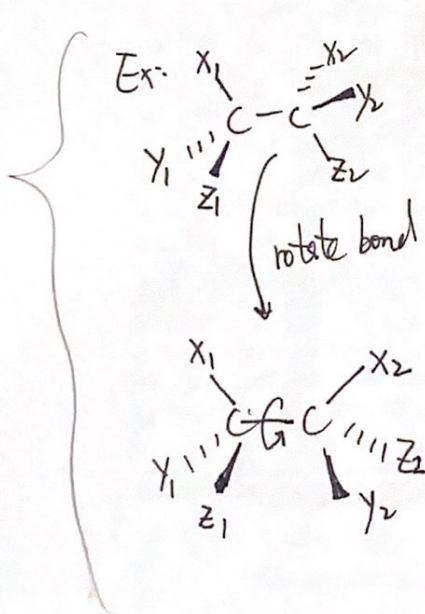 Ex: X₁ X₂
C — C Y₂
Y₁ Z₁ Z₂
rotate bond
X₁ X₂
C C
Y₁ Z₁ Y₂ Z₂